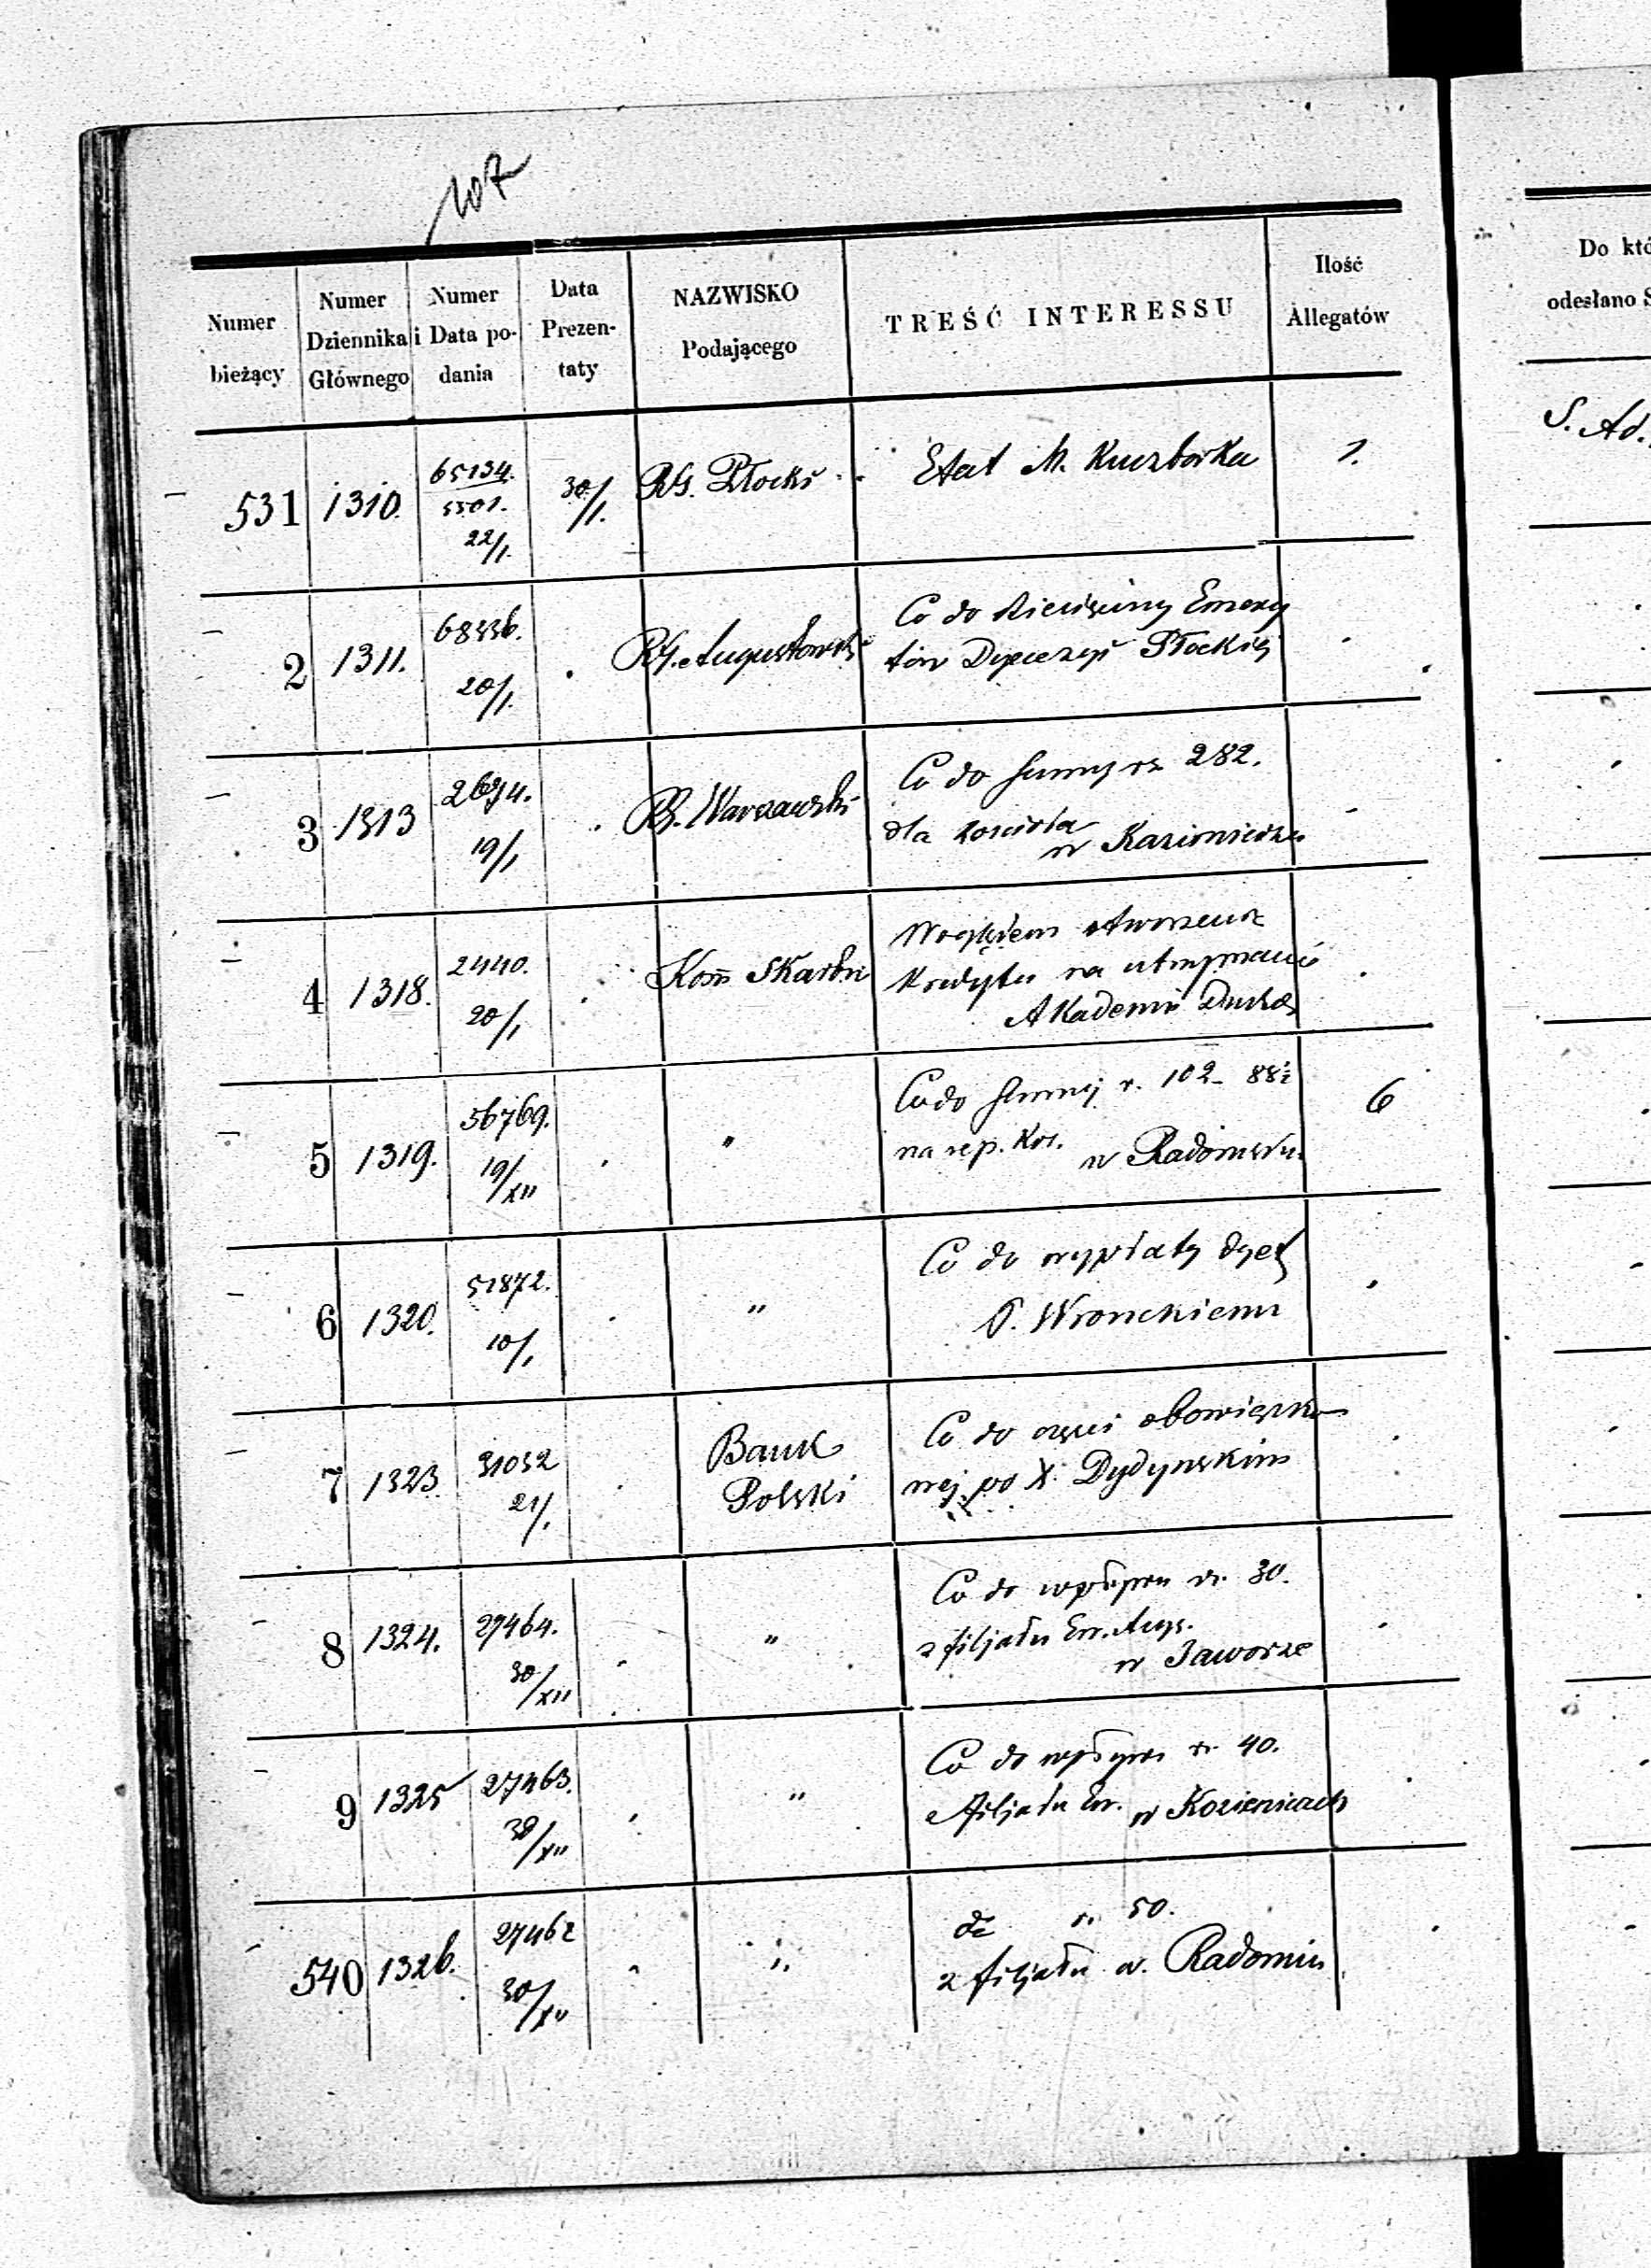 107
Numer bieżący
Numer Dziennika Głównego
Numer i Data podania
Data Prezentaty
NAZWISKO Podającego
TREŚĆ INTERESSU
Ilość Allegatów
Do któ
odesłano S
531 1310. 65134. 30/1. RG. Płocki Etat M. Kuczborka 1.
5501.
22/1.
S. Ad.
2 1311. 68336. RG. Augustowski Co do Emery
20/1. tów Dyecezyi Płockiej
3 1313 2694. RG. Warszawski Co do Summy rs 282.
19/1 dla kościoła
w Kazimierzu
4 1318. 2440. Kom Skarbu Względem otworzenia
20/1 Kredytu na utrzymanie
Akademii Duch
5 1319. 56769. " Co do Summy r. 102 - 88½ 6
19/XII na rep. Koś. w Radomsku
6 1320. 51872. " Co do wypłaty dyet
10/1 P. Wronckiemu
7 1323. 31032 Bank Co do części obowiązko
21/1. Polski wej po X. Dydyńskim
8 1324. 27464. " Co do wpływu rs. 30.
30/XII z filjału Ew. Augs.
w Jaworze
9 1325 27463. " Co do wpływu rs. 40.
30/XII z filjału Ew. w Kozienicach
540 1326. 27462 " dto r. 50.
30/XII z filjału w. Radomiu